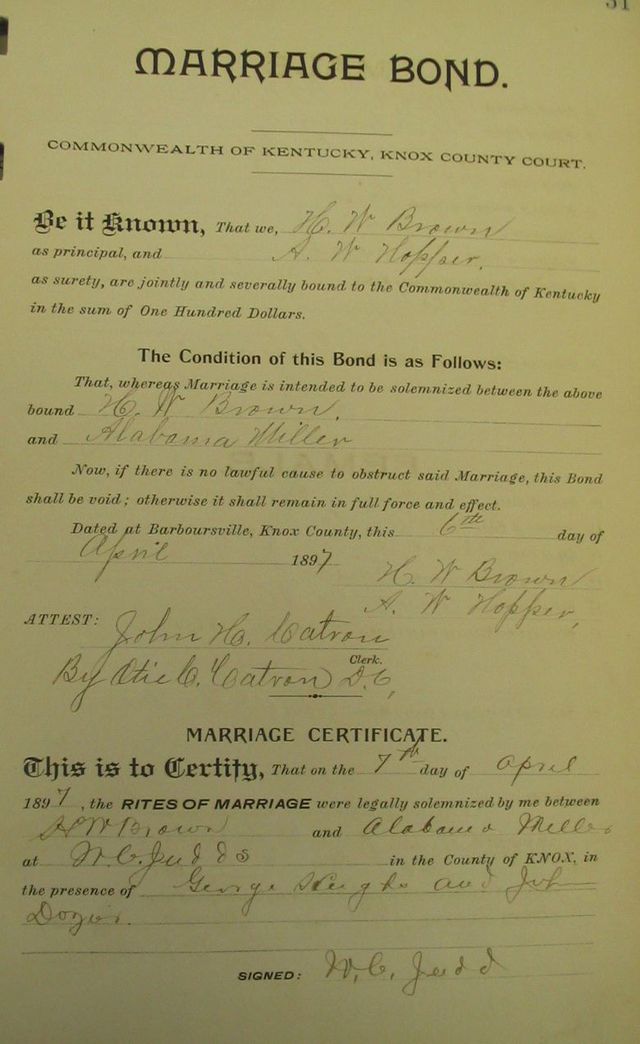 31
MARRIAGE BOND.
COMMONWEALTH OF KENTUCKY, KNOX COUNTY COURT.
Be it Known, That we, H. W Brown
as principal, and A. W Hopper,
as surety, are jointly and severally bound to the Commonwealth of Kentucky
in the sum of One Hundred Dollars.
The Condition of this Bond is as Follows:
That, whereas Marriage is intended to be solemnized between the above
bound H. W Brown.
and Alabama Miller
Now, if there is no lawful cause to obstruct said Marriage, this Bond
shall be void; otherwise it shall remain in full force and effect.
Dated at Barboursville, Knox County, this 6th day of
April 1897
H. W Brown
A. W Hopper,
ATTEST: John H. Catron
Clerk.
By Otie C. Catron D.C,
MARRIAGE CERTIFICATE.
This is to Certify, That on the 7th day of April
1897, the RITES OF MARRIAGE were legally solemnized by me between
H W Brown and Alabama Miller
at W.C. Judds in the County of KNOX, in
the presence of George and John
Dozier.
SIGNED: W. C. Judd